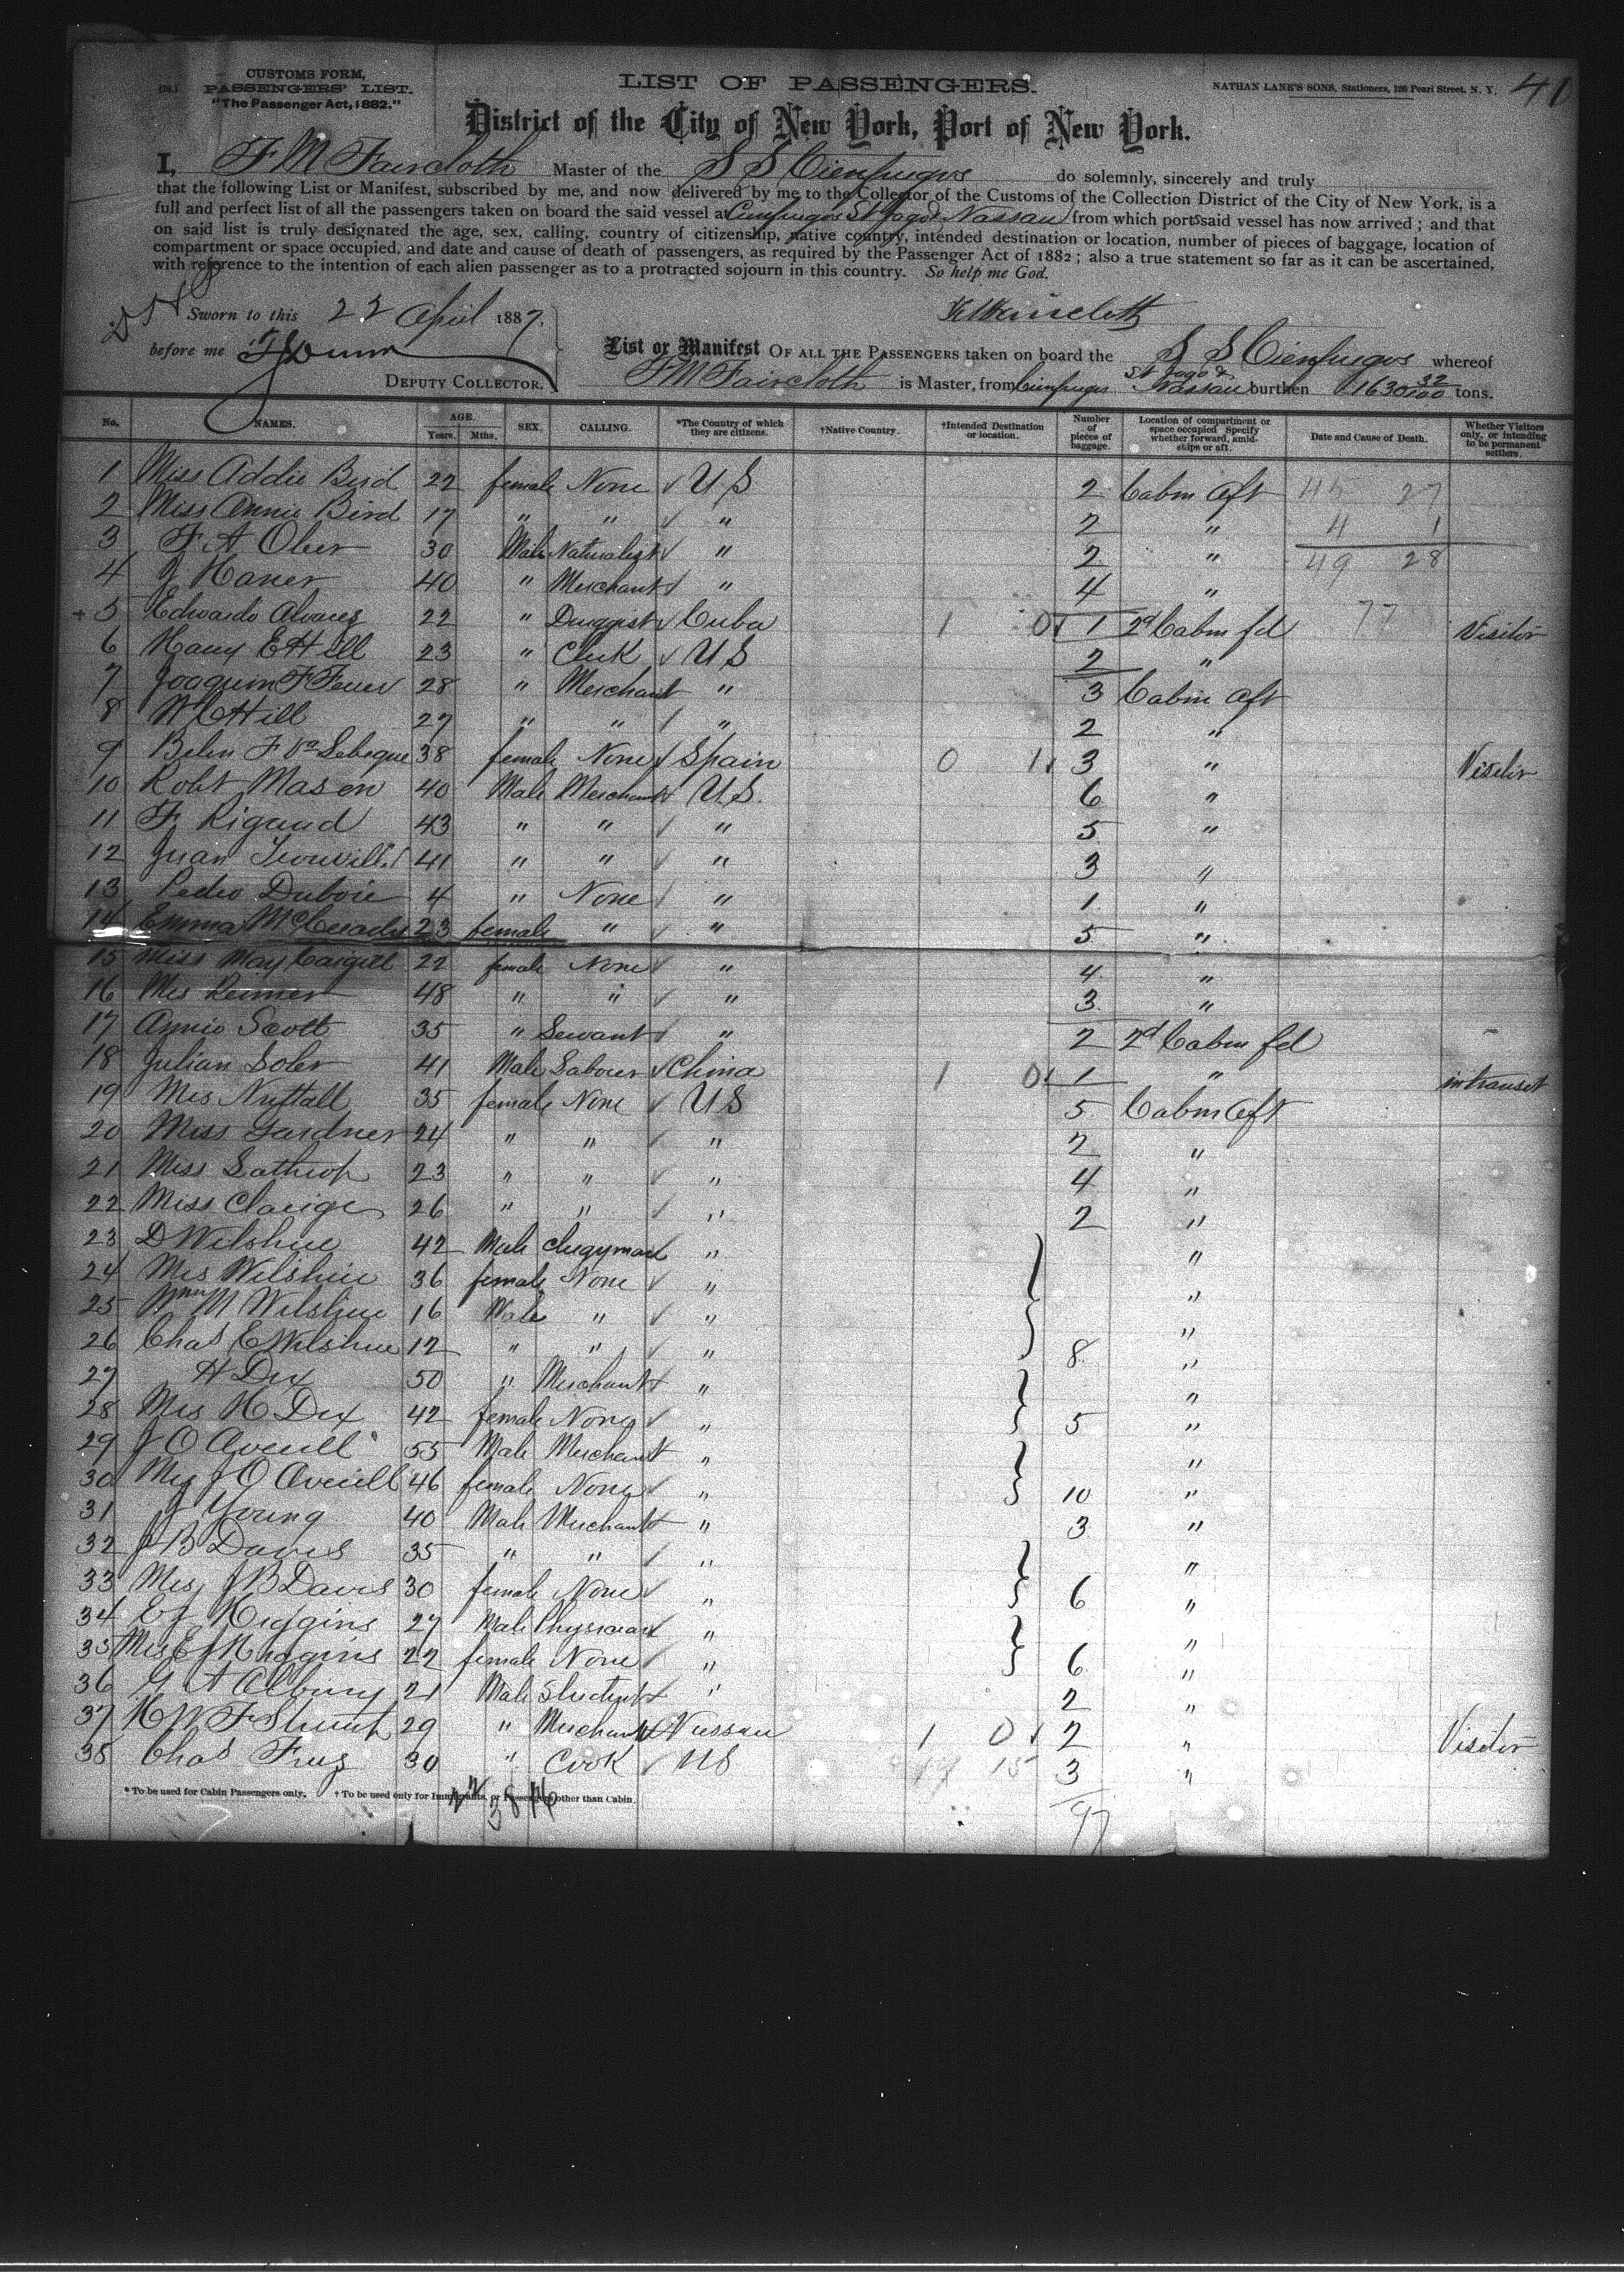 CUSTOMS FORM,
PASSENGERS' LIST.
"The Passenger Act, 1882."
LIST OF PASSENGERS.
NATHAN LANE'S SONS, Stationers, 126 Pearl Street, N. Y.
District of the City of New York, Port of New York.
I, F M Faircloth Master of the S S Cienfuegos do solemnly, sincerely and truly
that the following List or Manifest, subscribed by me, and now delivered by me to the Collector of the Customs of the Collection District of the City of New York, is a
full and perfect list of all the passengers taken on board the said vessel at Cienfuegos St Jago & Nassau from which ports said vessel has now arrived; and that
on said list is truly designated the age, sex, calling, country of citizenship, native country, intended destination or location, number of pieces of baggage, location of
compartment or space occupied, and date and cause of death of passengers, as required by the Passenger Act of 1882; also a true statement so far as it can be ascertained,
with reference to the intention of each alien passenger as to a protracted sojourn in this country. So help me God.
Sworn to this 22 April 1887.
before me
DEPUTY COLLECTOR.
List or Manifest OF ALL THE PASSENGERS taken on board the S S Cienfuegos whereof
F M Faircloth is Master, from Cienfuegos St Jago & Nassau burthen 1630 32/100 tons.
No. NAMES. AGE. Years. Mths. SEX. CALLING. *The Country of which they are citizens. †Native Country. †Intended Destination or location. Number of pieces of baggage. Location of compartment or space occupied. Specify whether forward, amidships or aft. Date and Cause of Death. Whether Visitors only, or intending to be permanent settlers.
1 Miss Addie Bird 22 female None U S 2 Cabin aft 45 27
2 Miss Annie Bird 17 " " " 2 " 4 1
3 F A Ober 30 Male Naturalist " 2 " 49 28
4 J Haner 40 " Merchant " 4 "
5 Edwardo Alvarez 22 " Druggist Cuba 1 0 1 2d Cabin fd 77 Visitor
6 Harry E Hill 23 " Clerk U S 2 "
7 Joaquim F 28 " Merchant " 3 Cabin aft
8 W C Hill 27 " " " 2 "
9 Belen F 38 female None Spain 0 1 3 " Visitor
10 Robt Mason 40 Male Merchant U S. 6 "
11 F. Rigaud 43 " " " 5 "
12 Juan 41 " " " 3 "
13 Pedro Dubois 4 " None " 1 "
14 Emma McCready 23 female " " 5 "
15 Miss May Cargill 22 female None " 4 "
16 Mrs Reimer 48 " " " 3 "
17 Annie Scott 35 " Servant " 2 2d Cabin fd
18 Julian Soler 41 Male Labourer China 1 0 1 " in transit
19 Mrs Nuttall 35 female None U S 5 Cabin aft
20 Miss Gardner 24 " " " 2 "
21 Miss Lathrop 23 " " " 4 "
22 Miss 26 " " " 2 "
23 D Wilshire 42 Male Clergyman " "
24 Mrs Wilshire 36 female None " "
25 Wm M Wilshire 16 Male " " "
26 Chas E Wilshire 12 " " " 8 "
27 H Dix 50 " Merchant " "
28 Mrs H Dix 42 female None " 5 "
29 J O Averill 55 Male Merchant " "
30 Mrs J O Averill 46 female None " 10 "
31 J Young 40 Male Merchant " 3 "
32 J B Davis 35 " " " "
33 Mrs J B Davis 30 female None " 6 "
34 E J Higgins 27 Male Physician " "
35 Mrs E J Higgins 22 female None " 6 "
36 G A Albury 21 Male Student " 2 "
37 H W F 29 " Merchant Nassau 1 0 2 " Visitor
38 Chas 30 " Cook U S 3 "
* To be used for Cabin Passengers only. † To be used only for Immigrants, or Passengers other than Cabin
22 38 16
97